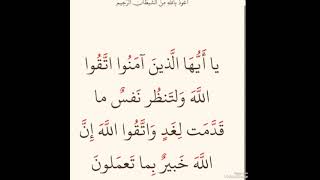 أعوذ بالله من الشيطان الرجيم
يا أَيُّهَا الَّذينَ آمَنُوا اتَّقُوا
اللَّهَ وَلتَنظُر نَفسٌ ما
قَدَّمَت لِغَدٍ وَاتَّقُوا اللَّهَ إِنَّ
اللَّهَ خَبيرٌ بِما تَعمَلونَ